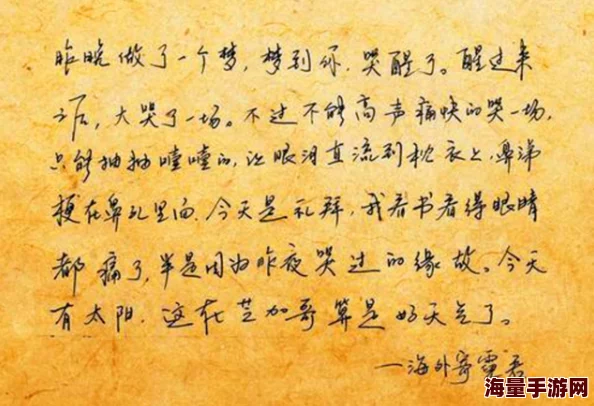 昨晚做了一个梦，梦到你，哭醒了。醒过来
之后，大哭了一场。不过不能高声痛快的哭一场，
只能抽抽噎噎的，让眼泪直流到枕衣上，鼻涕
梗在鼻孔里面。今天是礼拜，我看书看得眼睛
都痛了，半是因为昨夜哭过的缘故。今天
有太阳，这在芝加哥算是好天气了。
—海外寄霓君
海量手游网
www.hailiangip.com